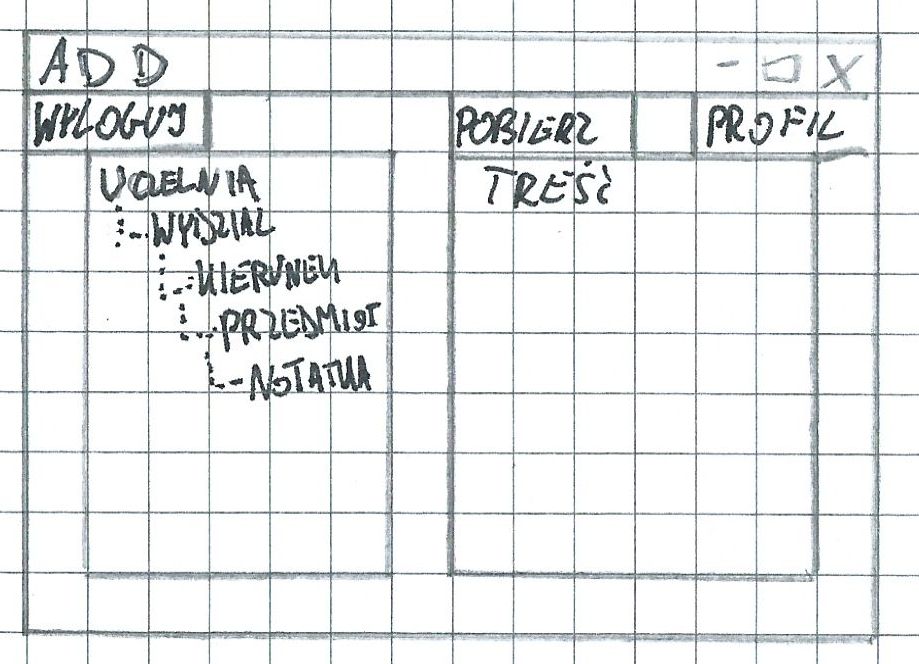 ADD - □ X
WYLOGUJ POBIERZ PROFIL
UCZELNIA TREŚĆ
WYDZIAŁ
KIERUNEK
PRZEDMIOT
NOTATKA